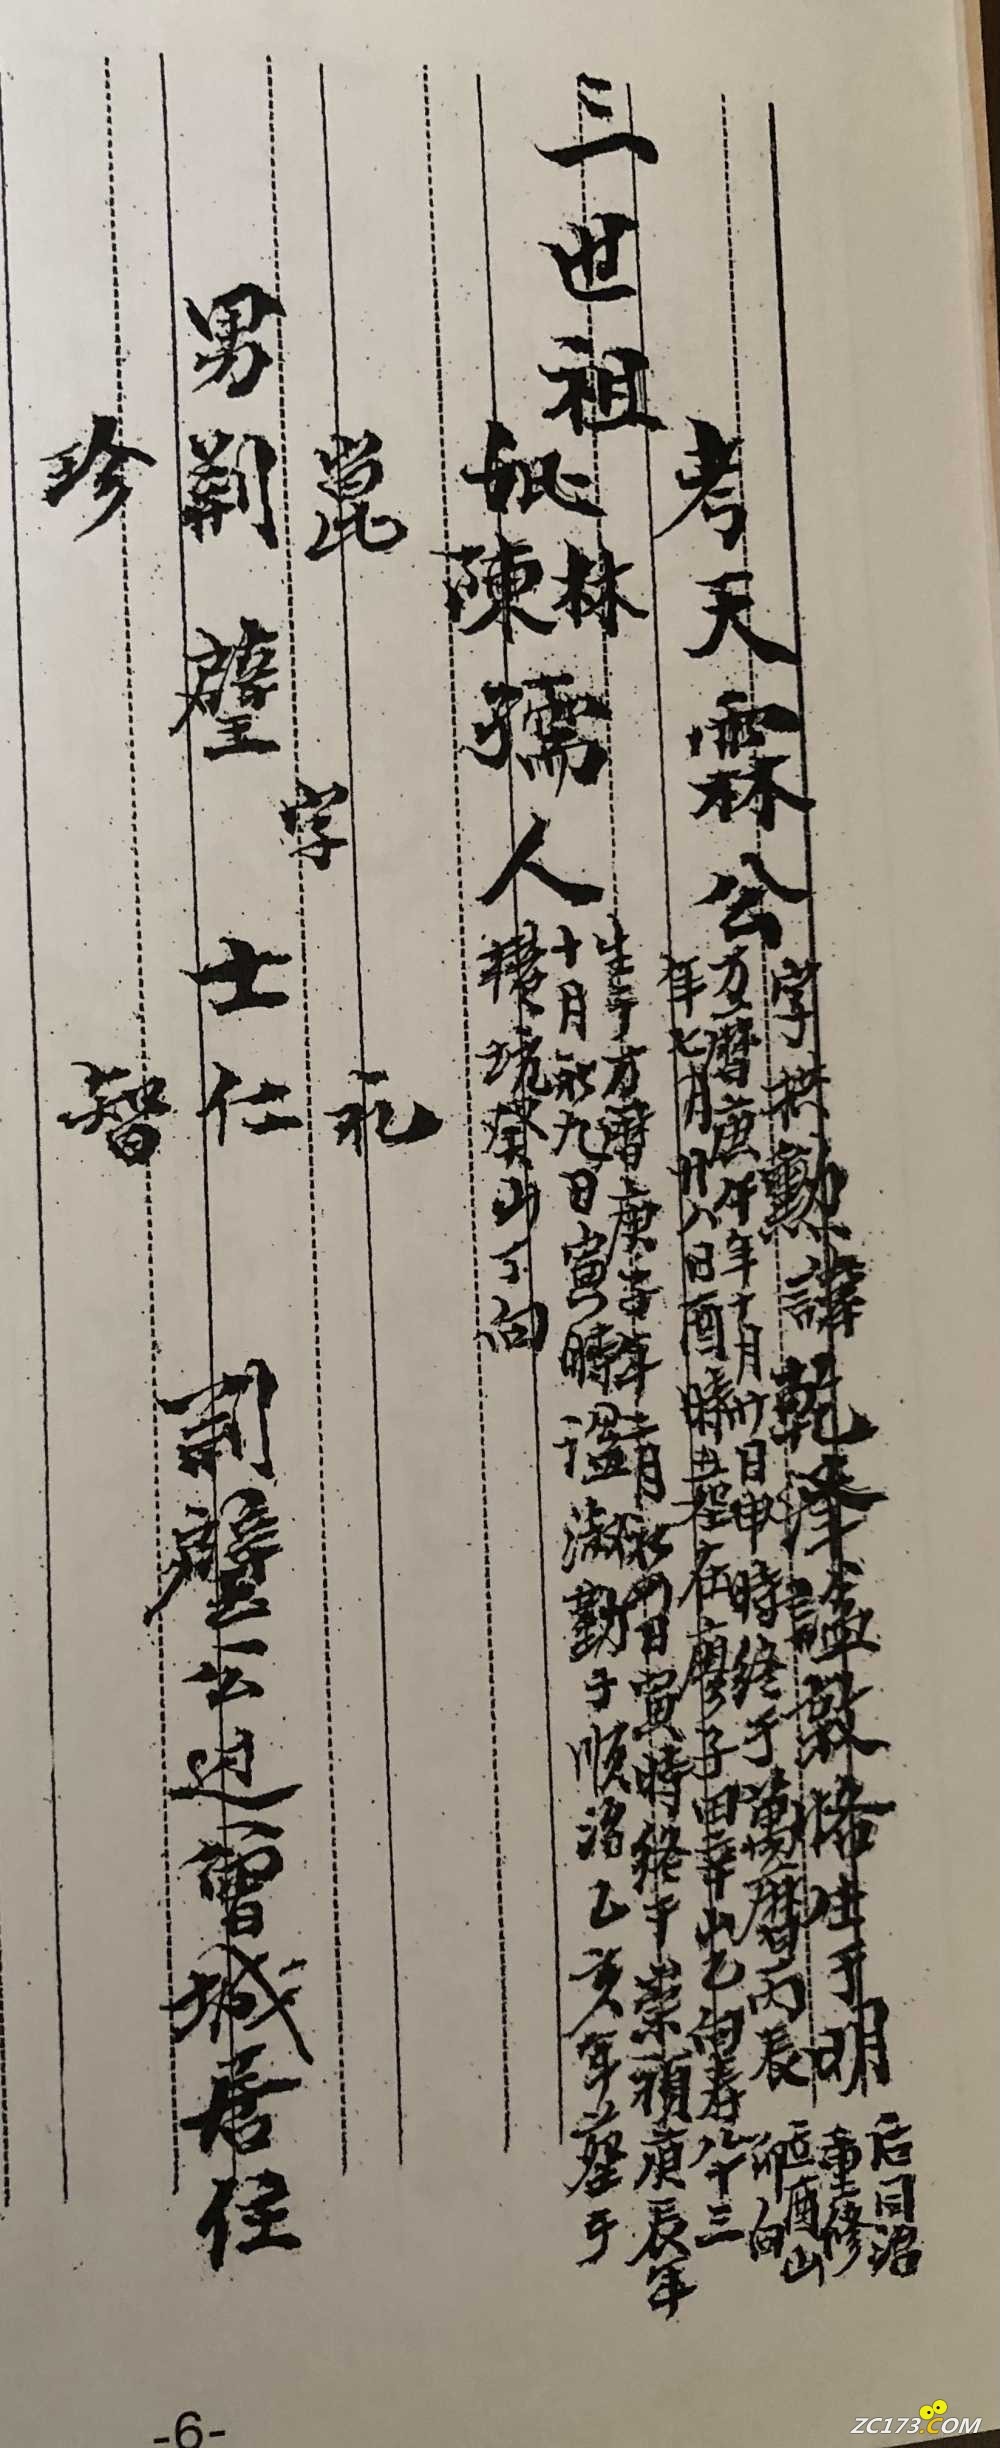 三世祖
考天霖公
字 勳諱乾泽諡敦恪生于明
万曆庚午年十月廿日申時終于萬曆丙辰
年七月廿八日酉時 塟在廖子田辛山乙向寿八十三
后同治
重修
立酉山
卯向
妣林陳孺人
生于万曆庚 年 月 四日寅時終于崇禎庚辰年
十月初九日寅時諡淑勤 順治乙亥年塟于
坑癸山丁向
男
崑
荆璧
珍
字
士
礼
仁
智
荆璧公迁曾城居住
-6-
ZC173.COM